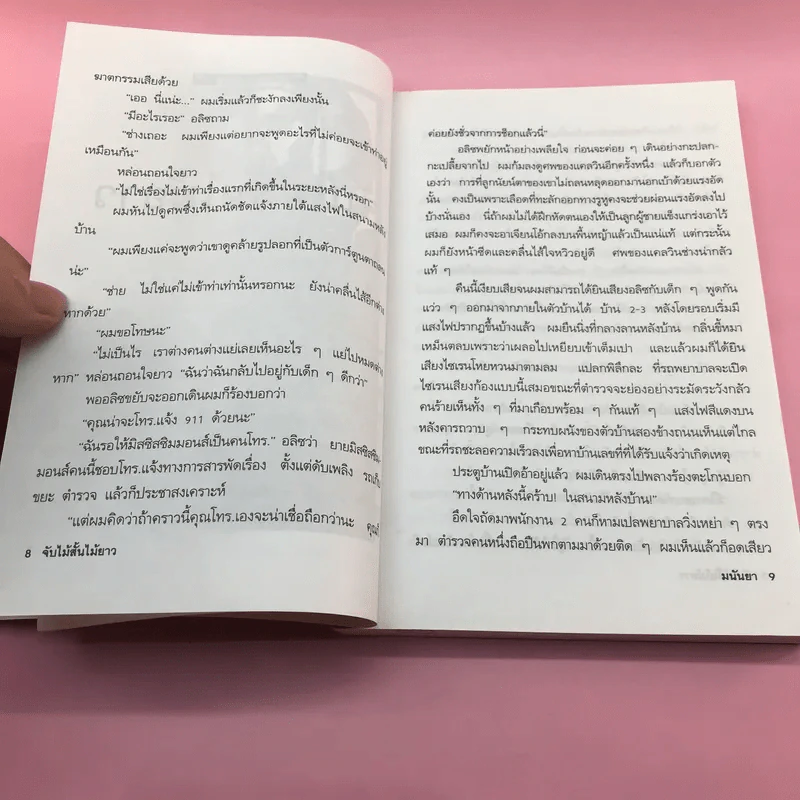 ฆาตกรรมเสียด้วย
"เออ นี่แน่ะ..." ผมเริ่มแล้วก็ชะงักลงเพียงนั้น
"มีอะไรเรอะ" อลิซถาม
"ช่างเถอะ ผมเพียงแต่อยากจะพูดอะไรที่ไม่ค่อยจะเข้าท่าอยู่
เหมือนกัน"
หล่อนถอนใจยาว
"ไม่ใช่เรื่องไม่เข้าท่าเรื่องแรกที่เกิดขึ้นในระยะหลังนี่หรอก"
ผมหันไปดูศพซึ่งเห็นถนัดชัดแจ้งภายใต้แสงไฟในสนามหลัง
บ้าน
"ผมเพียงแค่จะพูดว่าเขาดูคล้ายรูปลอกที่เป็นตัวการ์ตูนตาถลน
น่ะ"
"ช่าย ไม่ใช่แค่ไม่เข้าท่าเท่านั้นหรอกนะ ยังน่าคลื่นไส้อีกต่าง
หากด้วย"
"ผมขอโทษนะ"
"ไม่เป็นไร เราต่างคนต่างแย่เลยเห็นอะไร ๆ แย่ไปหมดต่าง
หาก" หล่อนถอนใจยาว "ฉันว่าฉันกลับไปอยู่กับเด็ก ๆ ดีกว่า"
พออลิซขยับจะออกเดินผมก็ร้องบอกว่า
"คุณน่าจะโทร.แจ้ง 911 ด้วยนะ"
"ฉันรอให้มิสซิสซิมมอนส์เป็นคนโทร." อลิซว่า ยายมิสซิสซิม
มอนส์คนนี้ชอบโทร.แจ้งทางการสารพัดเรื่อง ตั้งแต่ดับเพลิง รถเก็บ
ขยะ ตำรวจ แล้วก็ประชาสงเคราะห์
"แต่ผมคิดว่าถ้าคราวนี้คุณโทร.เองจะน่าเชื่อถือกว่านะ คุณก็
8 จับไม้สั้นไม้ยาว
ค่อยยังชั่วจากการช็อกแล้วนี่"
อลิซพยักหน้าอย่างเพลียใจ ก่อนจะค่อย ๆ เดินอย่างกะปลก-
กะเปลี้ยจากไป ผมก้มลงดูศพของแคลวินอีกครั้งหนึ่ง แล้วก็บอกตัว
เองว่า การที่ลูกนัยน์ตาของเขาไม่ถลนหลุดออกมานอกเบ้าด้วยแรงอัด
นั้น คงเป็นเพราะเลือดที่ทะลักออกทางรูหูคงจะช่วยผ่อนแรงอัดลงไป
บ้างนั่นเอง นี่ถ้าผมไม่ได้ฝึกหัดตนเองให้เป็นลูกผู้ชายแข็งแกร่งเอาไว้
เสมอ ผมก็คงจะอาเจียนโอ้กลงบนพื้นหญ้าแล้วเป็นแน่แท้ แต่กระนั้น
ผมก็ยังหน้าซีดและคลื่นไส้ใจหวิวอยู่ดี ศพของแคลวินช่างน่ากลัว
แท้ ๆ
คืนนี้เงียบเสียจนผมสามารถได้ยินเสียงอลิซกับเด็ก ๆ พูดกัน
แว่ว ๆ ออกมาจากภายในตัวบ้านได้ บ้าน 2-3 หลังโดยรอบเริ่มมี
แสงไฟปรากฏขึ้นบ้างแล้ว ผมยืนนิ่งที่กลางลานหลังบ้าน กลิ่นขี้หมา
เหม็นตลบเพราะว่าเผลอไปเหยียบเข้าเต็มเปา และแล้วผมก็ได้ยิน
เสียงไซเรนโหยหวนมาตามลม แปลกพิลึกละ ที่รถพยาบาลจะเปิด
ไซเรนเสียงก้องแบบนี้เสมอขณะที่ตำรวจจะย่องอย่างระมัดระวังกลัว
คนร้ายเห็นทั้ง ๆ ที่มาเกือบพร้อม ๆ กันแท้ ๆ แสงไฟสีแดงบน
หลังคารถวาบ ๆ กระทบผนังของตัวบ้านสองข้างถนนเห็นแต่ไกล
ขณะที่รถชะลอความเร็วลงเพื่อหาบ้านเลขที่ที่ได้รับแจ้งว่าเกิดเหตุ
ประตูบ้านเปิดอ้าอยู่แล้ว ผมเดินตรงไปพลางร้องตะโกนบอก
"ทางด้านหลังนี้คร้าบ! ในสนามหลังบ้าน!"
อึดใจถัดมาพนักงาน 2 คนก็หามเปลพยาบาลวิ่งเหย่า ๆ ตรง
มา ตำรวจคนหนึ่งถือปืนพกตามมาด้วยติด ๆ ผมเห็นแล้วก็อดเสียว
มนันยา 9